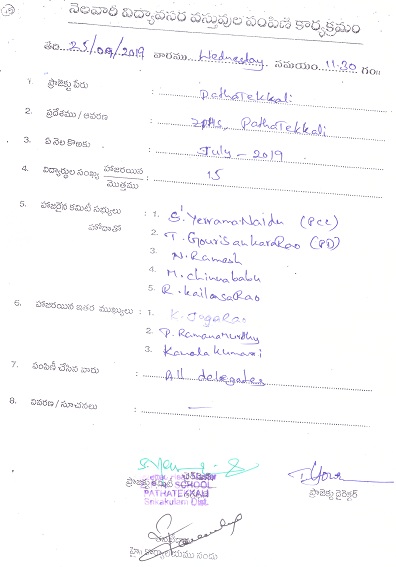 నెలవారీ విద్యావసర వస్తువుల పంపిణీ కార్యక్రమం
తేది: 25/09/2019 వారము Wednesday సమయం: 11.30 గం॥
1. ప్రాజెక్టు పేరు : PathaTekkali
2. ప్రదేశము / ఆవరణ : ZPHS, PathaTekkali
3. ఏ నెల కొఱకు : July - 2019
4. విద్యార్థుల సంఖ్య హాజరయిన / మొత్తము : 15
5. హాజరైన కమిటీ సభ్యులు : 1. S. YerramaNaidu (PCC)
హోదాతో 2. T. GouriSankaraRao (PD)
3. N. Ramesh
4. M. chinnababu
5. R. kailasaRao
6. హాజరయిన ఇతర ముఖ్యులు : 1. K. JogaRao
2. P. Ramanamurthy
3. Kanakakumari
7. పంపిణీ చేసిన వారు : All delegates
8. వివరణ / సూచనలు : —
ప్రాజెక్టు కమిటీ
SCHOOL
PATHATEKKALI
Srikakulam Dist.
ప్రాజెక్టు డైరెక్టర్